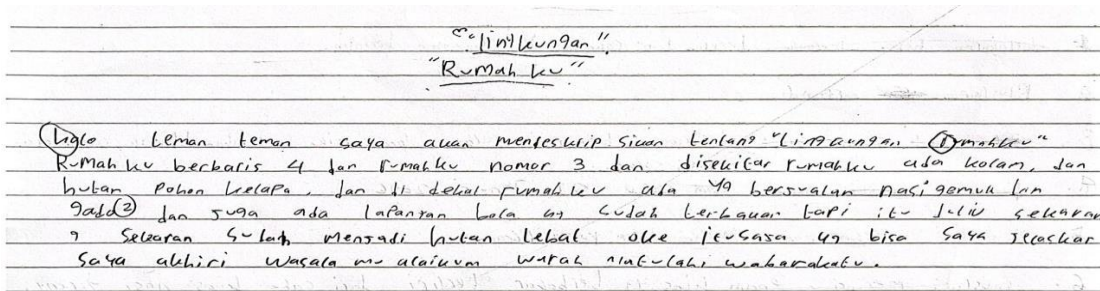 "lingkungan"
"Rumah ku"
Halo teman teman saya akan mendeskripsikan tentang "lingkungan Rumahku"
Rumah ku berbaris 4 dan rumahku nomor 3 dan disekitar rumahku ada kolam, dan
hutan pohon kelapa, dan di dekat rumah ku ada yg berjualan nasi gemuk dan
gado2 dan juga ada lapanran bola yg sudah terbakar tapi itu dulu sekaran
g sekaran sudah menjadi hutan lebat oke itusaja yg bisa saya jelaskan
saya akhiri wasala mu alaikum warah matulahi wabarakatu.